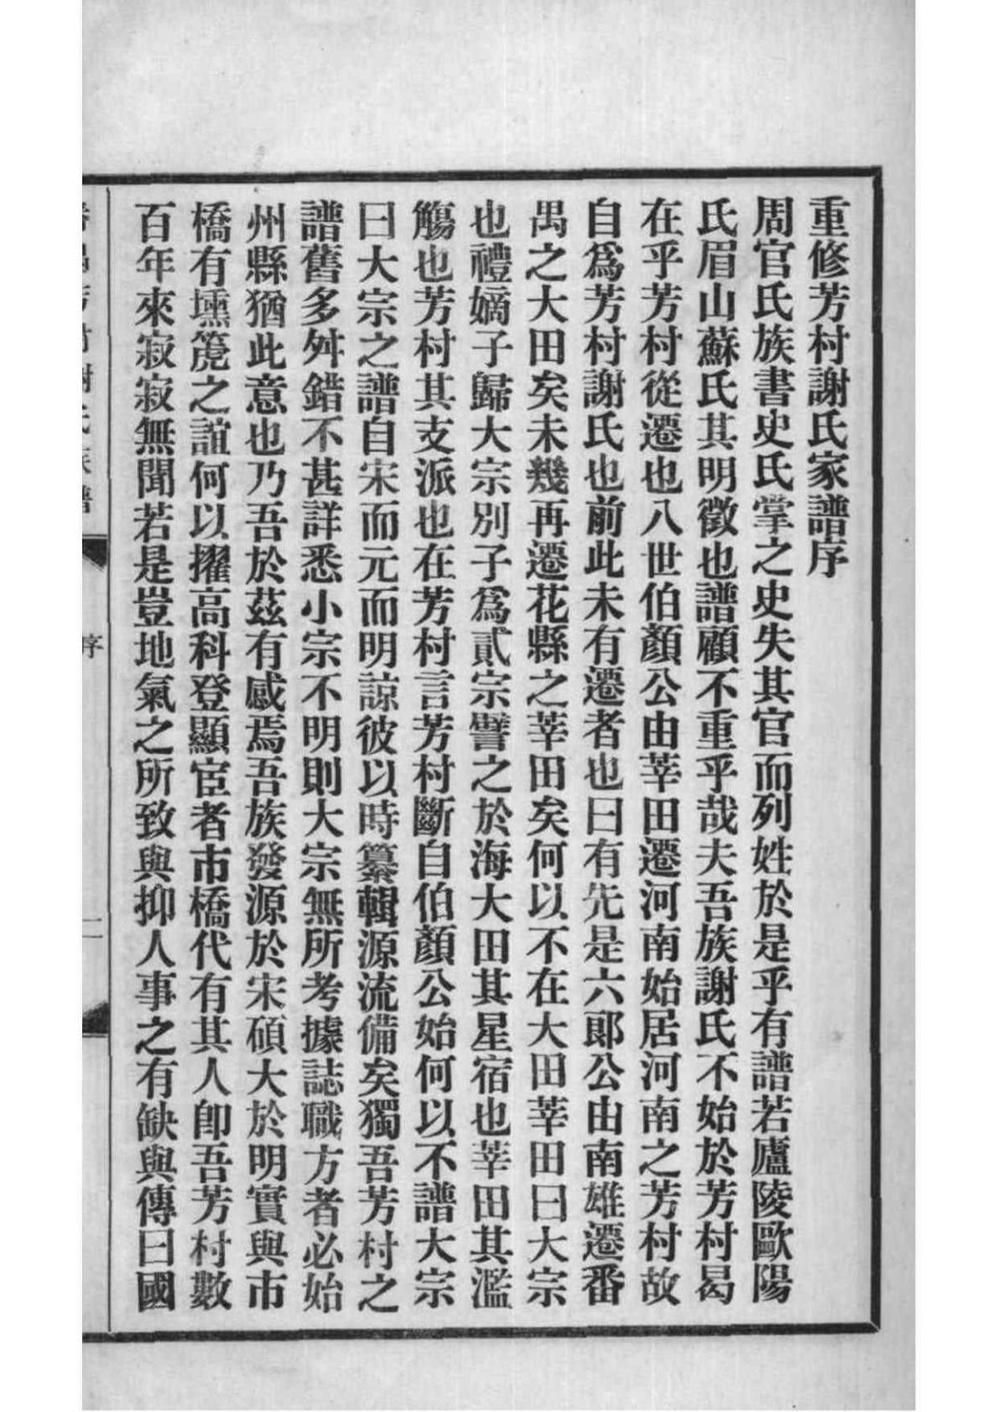 重修芳村謝氏家譜序
周官氏族書史氏掌之史失其官而列姓於是乎有譜若廬陵歐陽
氏眉山蘇氏其明徵也譜顧不重乎哉夫吾族謝氏不始於芳村曷
在乎芳村從遷也八世伯顏公由莘田遷河南始居河南之芳村故
自爲芳村謝氏也前此未有遷者也曰有先是六郞公由南雄遷番
禺之大田矣未幾再遷花縣之莘田矣何以不在大田莘田曰大宗
也禮嫡子歸大宗別子爲貳宗譬之於海大田其星宿也莘田其濫
觴也芳村其支派也在芳村言芳村斷自伯顏公始何以不譜大宗
曰大宗之譜自宋而元而明諒彼以時纂輯源流備矣獨吾芳村之
譜舊多舛錯不甚詳悉小宗不明則大宗無所考據誌職方者必始
州縣猶此意也乃吾於茲有感焉吾族發源於宋碩大於明實與市
橋有壎篪之誼何以擢高科登顯宦者市橋代有其人卽吾芳村數
百年來寂寂無聞若是豈地氣之所致與抑人事之有缺與傳曰國
序
二